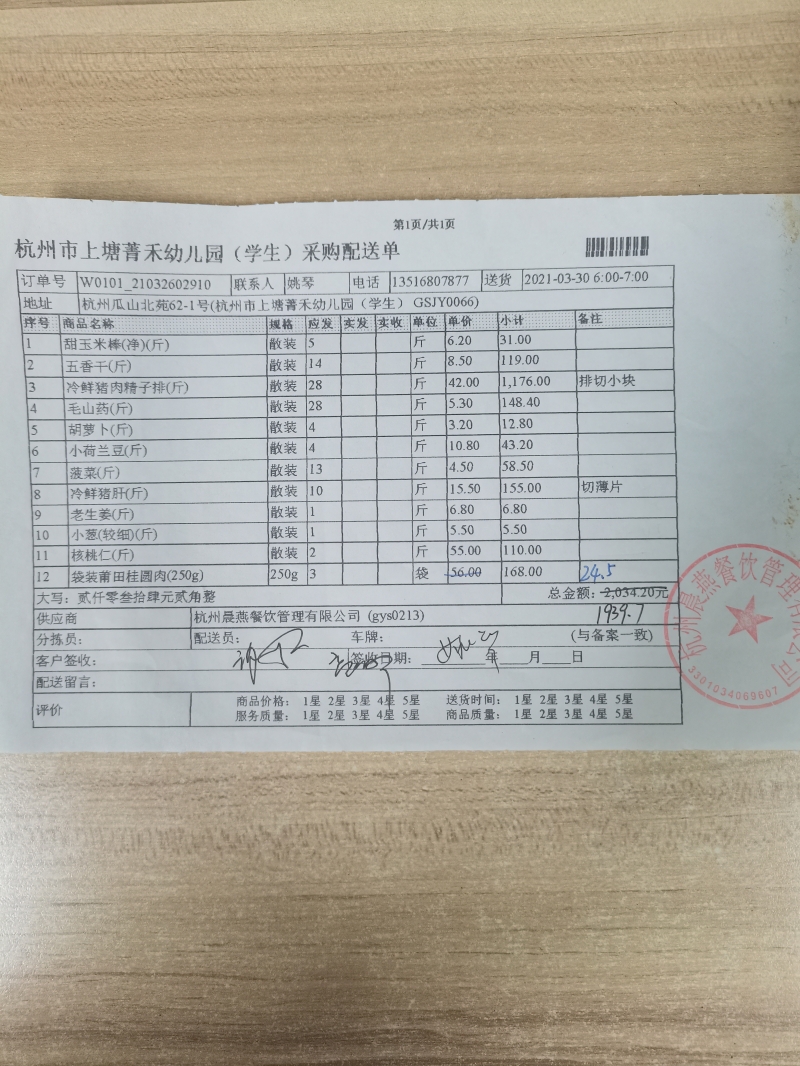 第1页/共1页
杭州市上塘菁禾幼儿园（学生）采购配送单
订单号 W0101_21032602910 联系人 姚琴 电话 13516807877 送货 2021-03-30 6:00-7:00
地址 杭州瓜山北苑62-1号(杭州市上塘菁禾幼儿园（学生） GSJY0066)
序号 商品名称 规格 应发 实发 实收 单位 单价 小计 备注
1 甜玉米棒(净)(斤) 散装 5 斤 6.20 31.00
2 五香干(斤) 散装 14 斤 8.50 119.00
3 冷鲜猪肉精子排(斤) 散装 28 斤 42.00 1,176.00 排切小块
4 毛山药(斤) 散装 28 斤 5.30 148.40
5 胡萝卜(斤) 散装 4 斤 3.20 12.80
6 小荷兰豆(斤) 散装 4 斤 10.80 43.20
7 菠菜(斤) 散装 13 斤 4.50 58.50
8 冷鲜猪肝(斤) 散装 10 斤 15.50 155.00 切薄片
9 老生姜(斤) 散装 1 斤 6.80 6.80
10 小葱(较细)(斤) 散装 1 斤 5.50 5.50
11 核桃仁(斤) 散装 2 斤 55.00 110.00
12 袋装莆田桂圆肉(250g) 250g 3 袋 56.00 168.00 24.5
大写：贰仟零叁拾肆元贰角整 总金额：2,034.20元
1939.7
供应商 杭州晨燕餐饮管理有限公司 (gys0213)
分拣员： 配送员： 车牌： (与备案一致)
客户签收： 签收日期： 年 月 日
配送留言：
评价 商品价格： 1星 2星 3星 4星 5星 送货时间： 1星 2星 3星 4星 5星
服务质量： 1星 2星 3星 4星 5星 商品质量： 1星 2星 3星 4星 5星
杭州晨燕餐饮管理有限公司
3301034069607